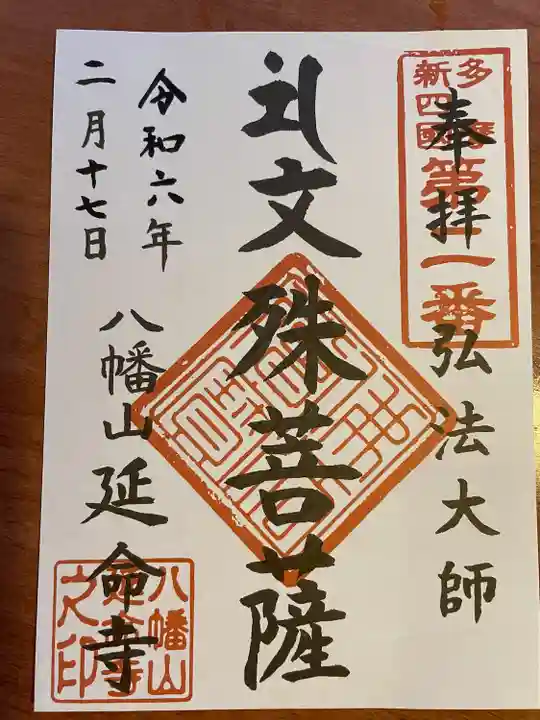 多摩
新四國
第二番
奉拝 弘法大師
文殊菩薩
令和六年
二月十七日
八幡山延命寺
八幡山
延命寺
之印